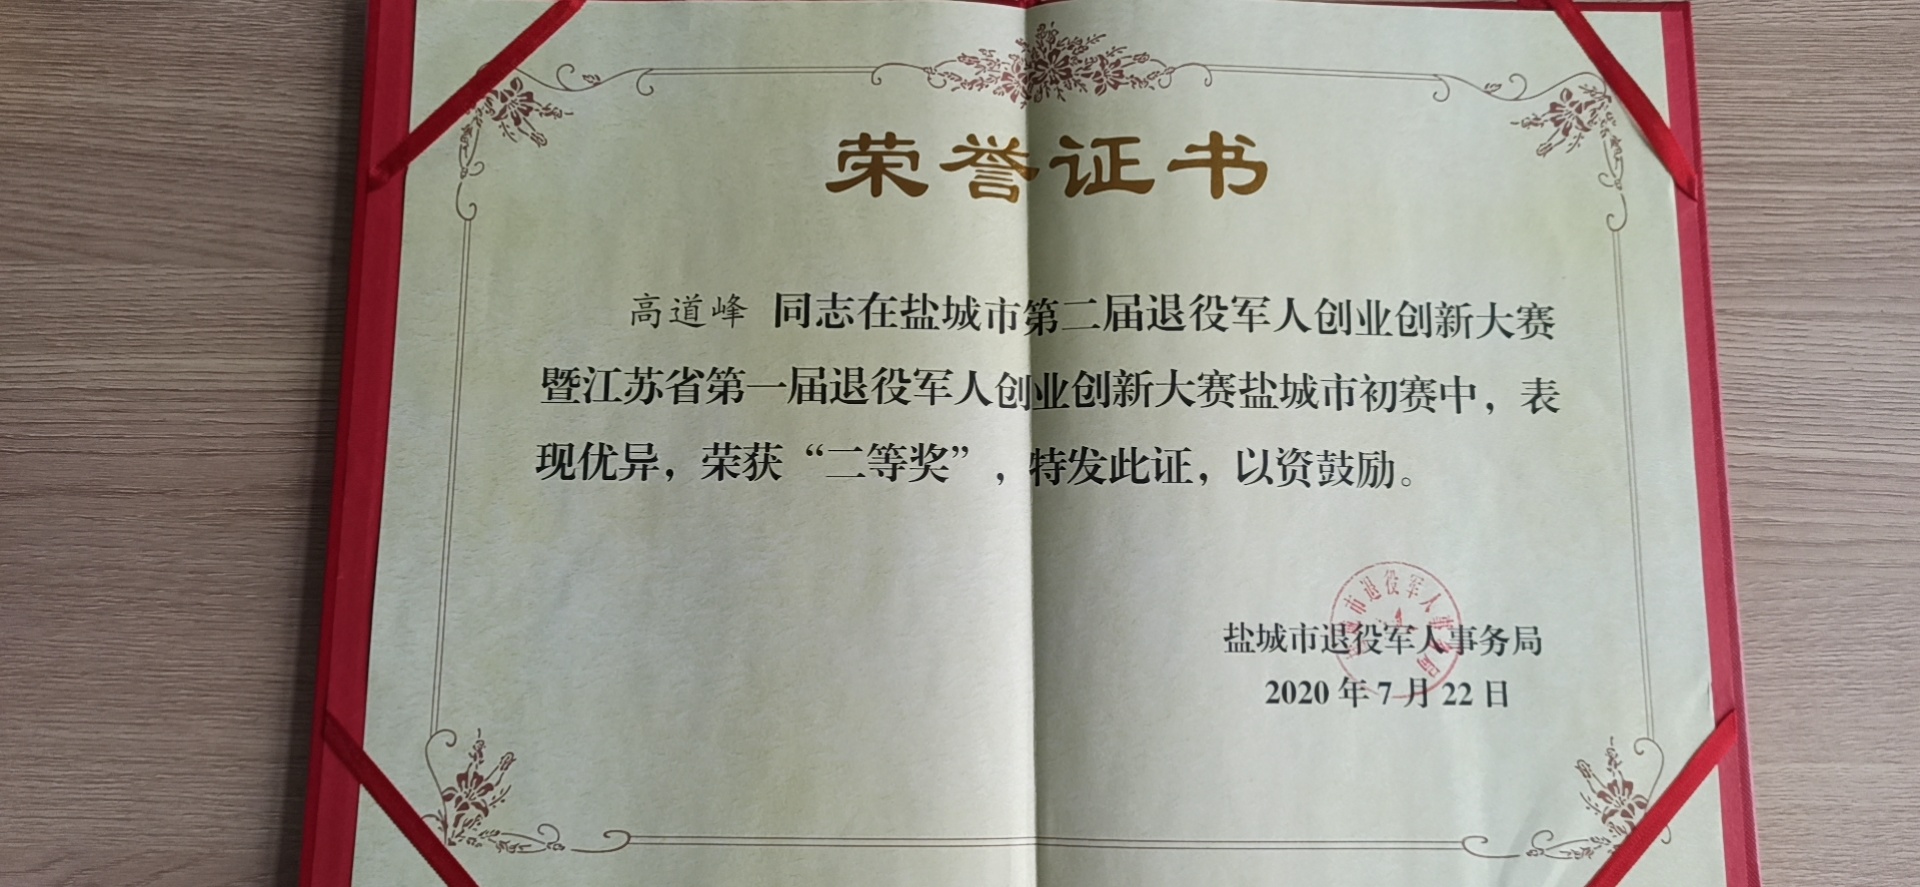 荣誉证书
高道峰 同志在盐城市第二届退役军人创业创新大赛
暨江苏省第一届退役军人创业创新大赛盐城市初赛中，表
现优异，荣获“二等奖”，特发此证，以资鼓励。
盐城市退役军人事务局
2020年7月22日